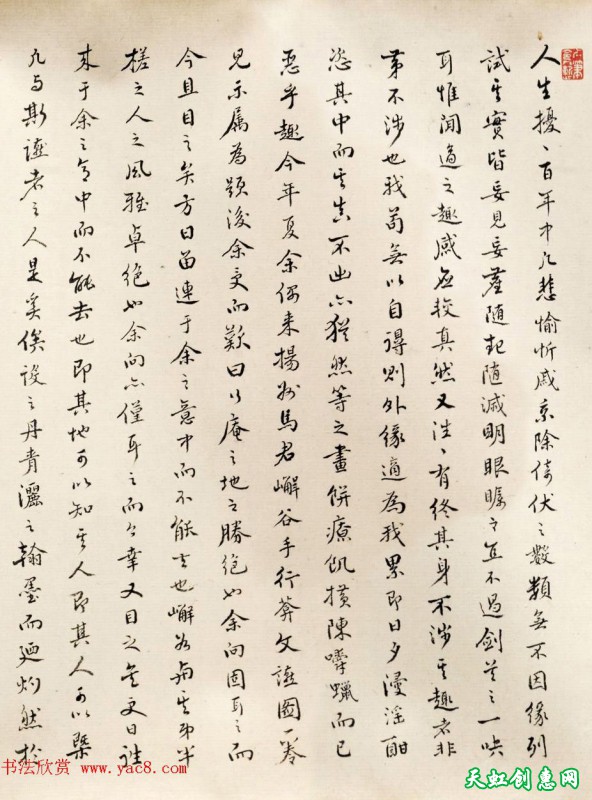 人生擾、百年中凡悲愉忻戚乘除倚伏之數類無不因緣列
試其實皆妄見妄塵隨起隨滅明眼矚之直不過劍首之一吷
耳惟閒適之趣感應較真然又往、有終其身不涉其趣者非
第不涉也我苟無以自得則外緣適為我累即日夕漫淫酣
恣其中而其真不出亦猶然等之畫餅療飢橫陳嚼蠟而已
惡乎趣今年夏余偶來揚州馬君嶰谷手行菴文讌圖一卷
見示屬為題後余受而歎曰行庵之地之勝絕如余向固耳之而
今且目之矣方日留連于余之意中而不能去也嶰谷
之人之風雅卓絕如余向亦僅耳之而今幸又目之矣更日
來于余之意中而不能去也即其地可以知其人即其人可以槩
凡与斯讌者之人是奚俟設之丹青灑之翰墨而迺灼然於
书法欣赏 www.yac8.com
天虹创惠网